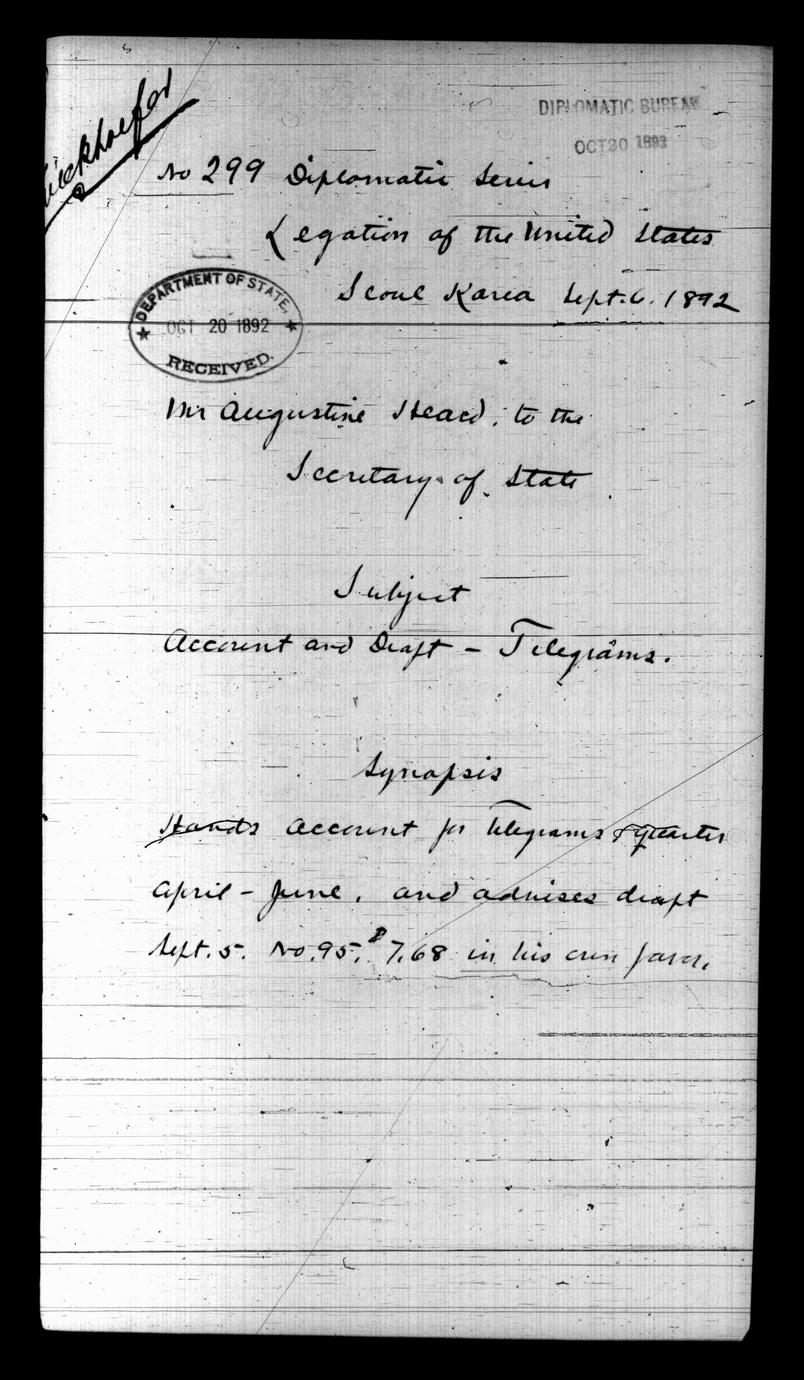 DIPLOMATIC BUREAU
OCT 20 1892
No 299 Diplomatic Series
Legation of the United States
Seoul Korea Sept. 6. 1892
DEPARTMENT OF STATE,
OCT 20 1892
RECEIVED.
Mr Augustine Heard, to the
Secretary of State
Subject
Account and Draft – Telegrams.
Synopsis
Hands account for Telegrams quarter
April – June, and advises draft
Sept. 5. No. 95. $7.68 in his own favor.